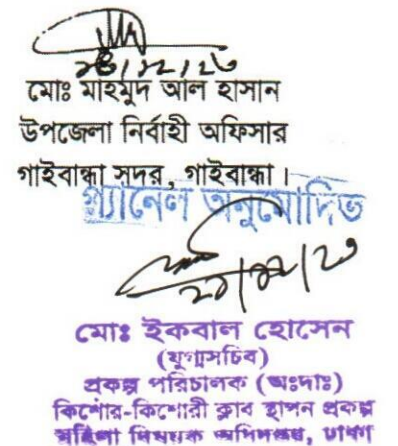 মোঃ মাহমুদ আল হাসান
উপজেলা নির্বাহী অফিসার
গাইবান্ধা সদর, গাইবান্ধা।
প্যানেল অনুমোদিত
মোঃ ইকবাল হোসেন
(যুগ্মসচিব)
প্রকল্প পরিচালক (অঃদাঃ)
কিশোর-কিশোরী ক্লাব স্থাপন প্রকল্প
মহিলা বিষয়ক অধিদপ্তর, ঢাকা